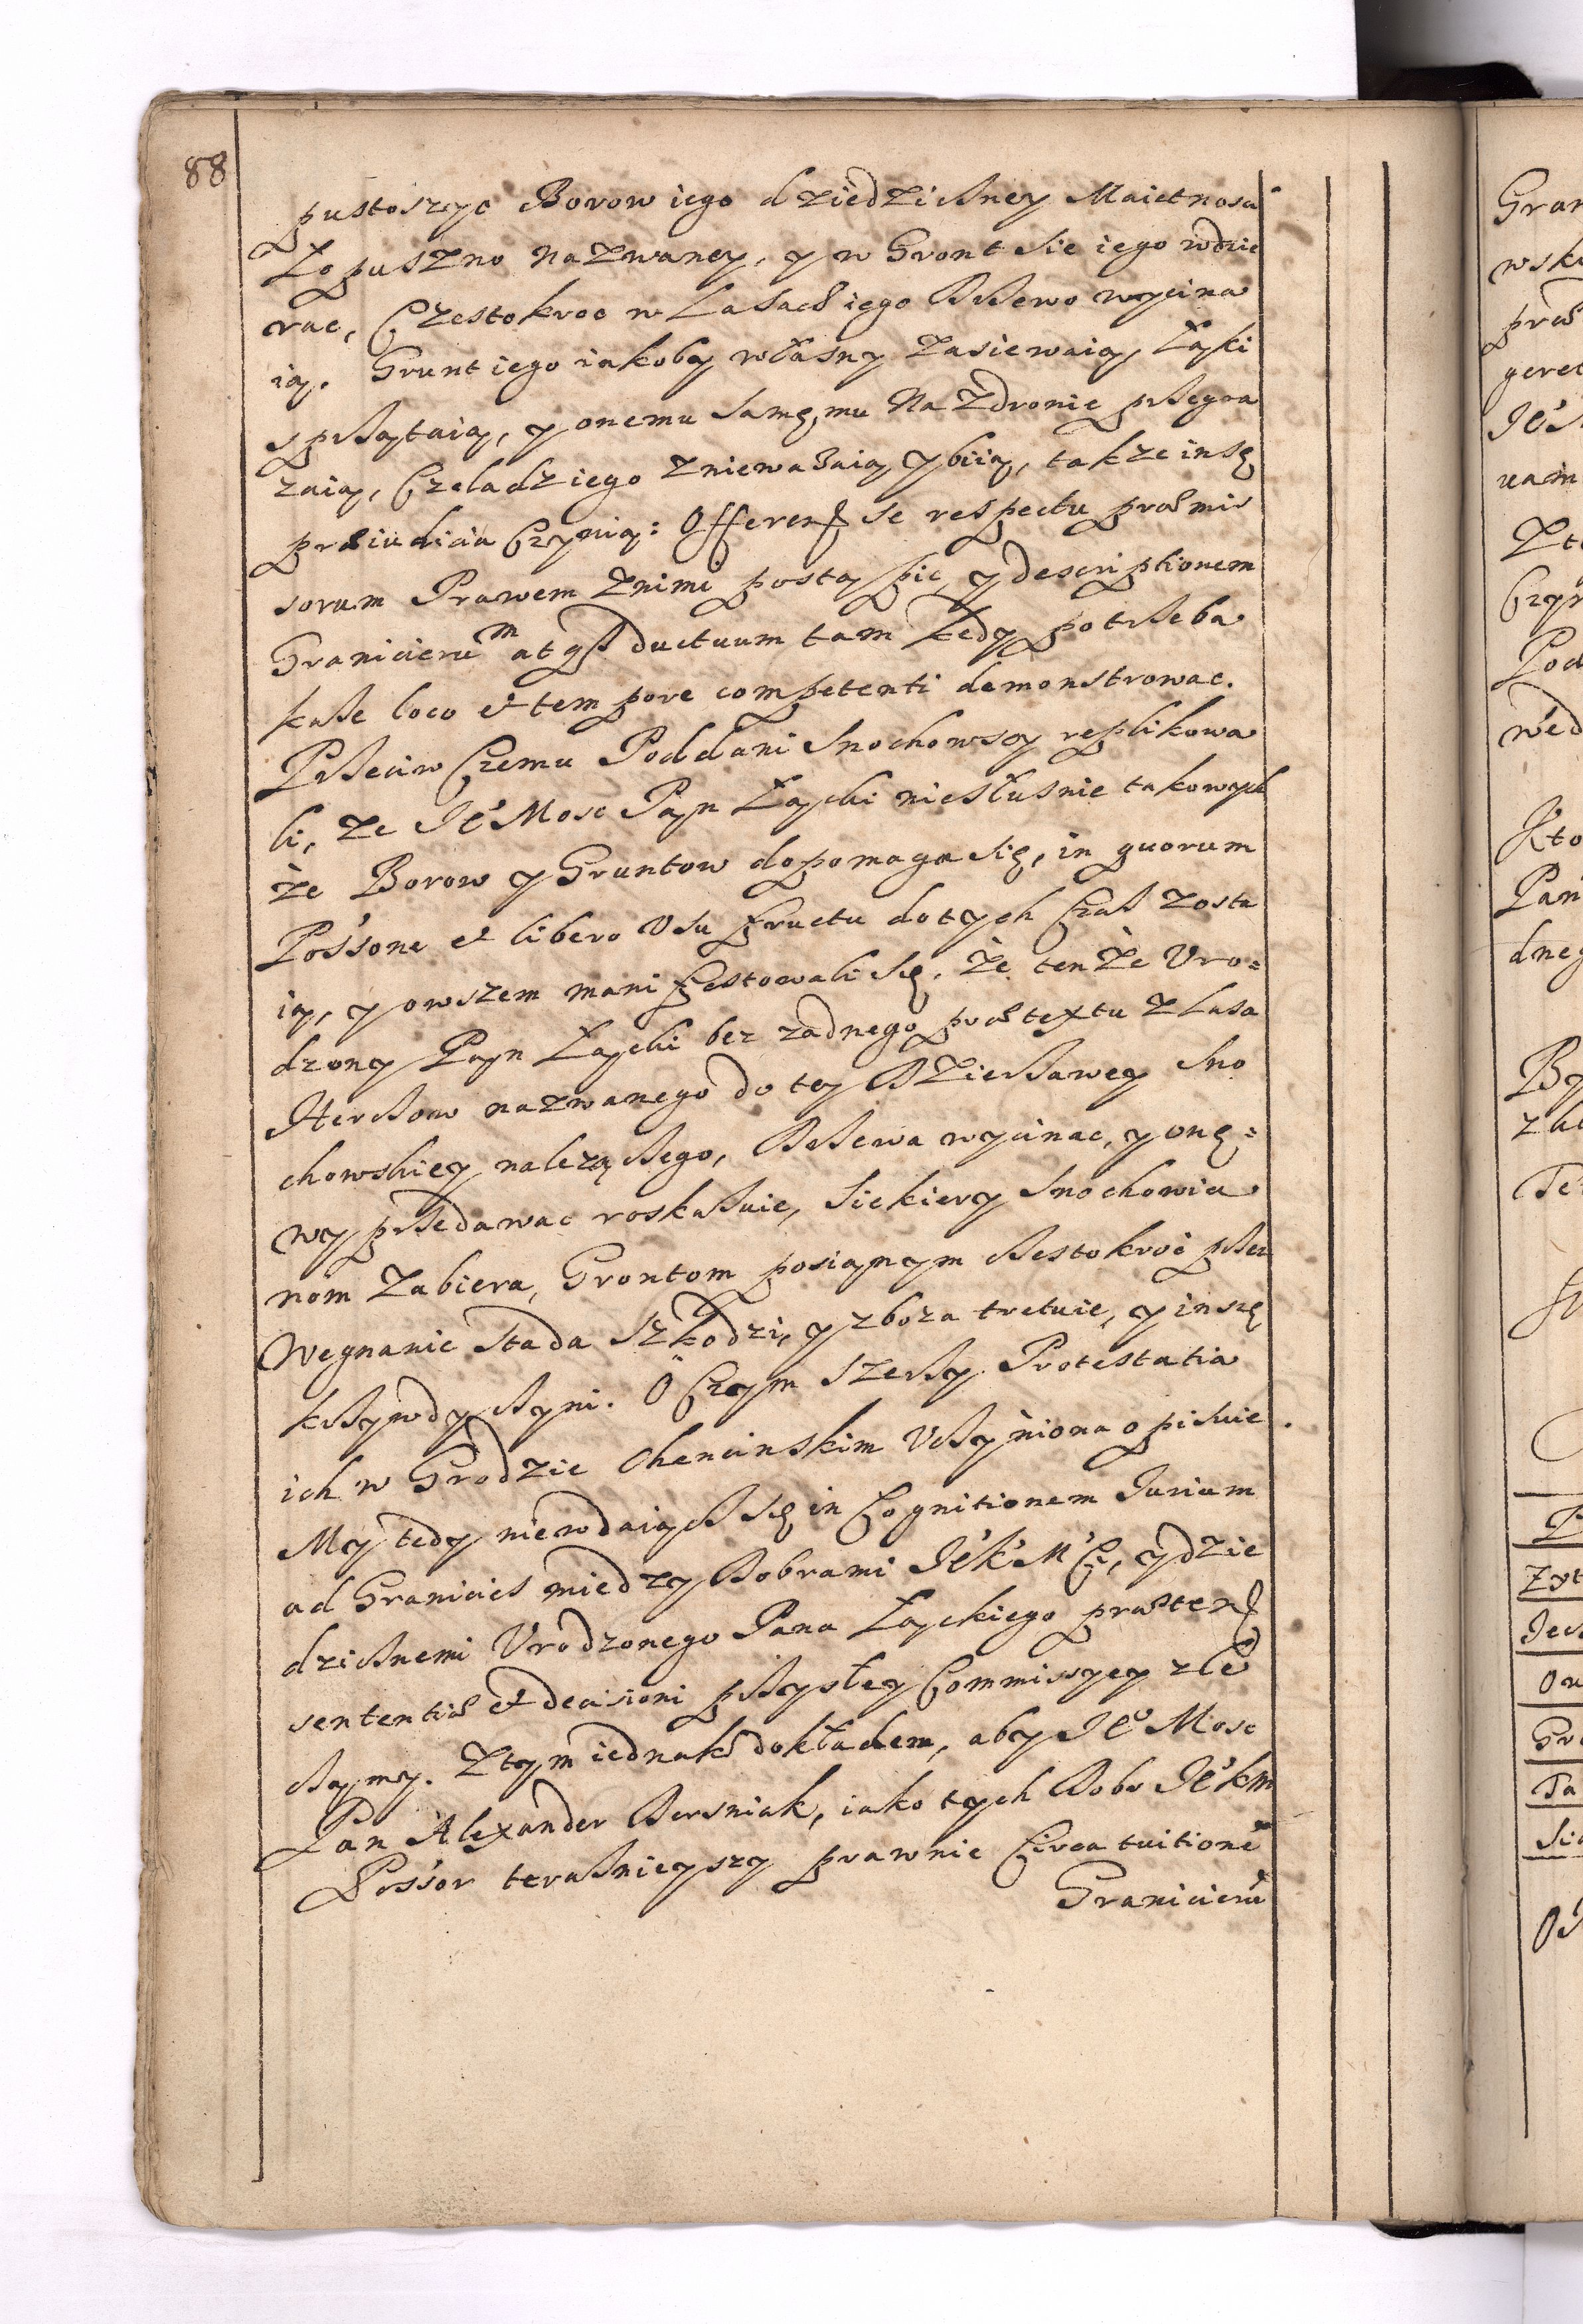 88
pustoszyc Borow iego dziedziczney Maietnosci
Łopuszno nazwaney, y w Gront sie iego wdzie
rac, Czestokroc w Lasach iego drzewo wycina
ią. Grunt iego iakoby własny zasiewaią, Łąki
sprzątaią, y onemu samemu na zdrowie przegra
zaią, Czeladz iego zniewazaią y biią, takze insze
præiudicia Czynią: Offerens se respectu præmis
sorum Prawem znimi postąpic, y descriptionem
Granicierum atque ductuum tam kedy potrzeba
kaze loco et tempore competenti demonstrowac.
Przeciw Czemu Poddani Snochowscy replikowa
li, ze Je° Mosc Pan Łącki niesłusnie takowych
ze Borow y Gruntow dopomaga się, in quorum
Pos'sone et libero Usu fructu dotych Czas zosta
ią, y owszem manifestowali się, że tenże Uro=
dzony Pan Łącki bez zadnego prætextu z Lasa
nazwanego do tey Dzierzawey Sno
chowskiey należącego, drzewa wycinac, y one=
wyprzedawac roskazuie, Siekiery Snochowia
nom zabiera, Grontom posianym czestokroć przez
Wegnanie Stada szkodzi, y zboza tretuie, y insze
krzywdy czyni. O Czym szerzy Protestatia
ich w Grodzie Chencinskim Uczyniona opisuie.
My tedy niewdaiącz się in Cognitionem Jurium
ad Granicies miedzy dobrami Je°k°M°Ci, y dzie
dzicznemi Urodzonego Pana Łąckiego prætens
sententiæ et decisioni przyszłey Commissyey zle
czymy. Ztym iednak dokładem, aby Je° Mosc
Pan Alexander Bersniak, iako tych dobr Je°km
Pos'sor teraznieyszy prawnie Circa tuitionē
Granicierū
Gran
wski
præ
geret
Je°
uam
Zte
Czyn
Pod
wed
Kto
Pan
dneg
By
zlu
Te
Zyt
Iecz
Ow
Gro
Ta
Sia